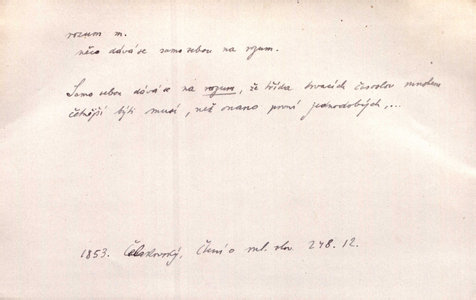 rozum m.
něco dává se samo sebou na rozum.
Samo sebou dává se na rozum, že třída trvacích časoslov mnohem
četnější býti musí, než onano první jednodobých,...
1853. Čelakovský, Čtení o ml. slov. 248.12.